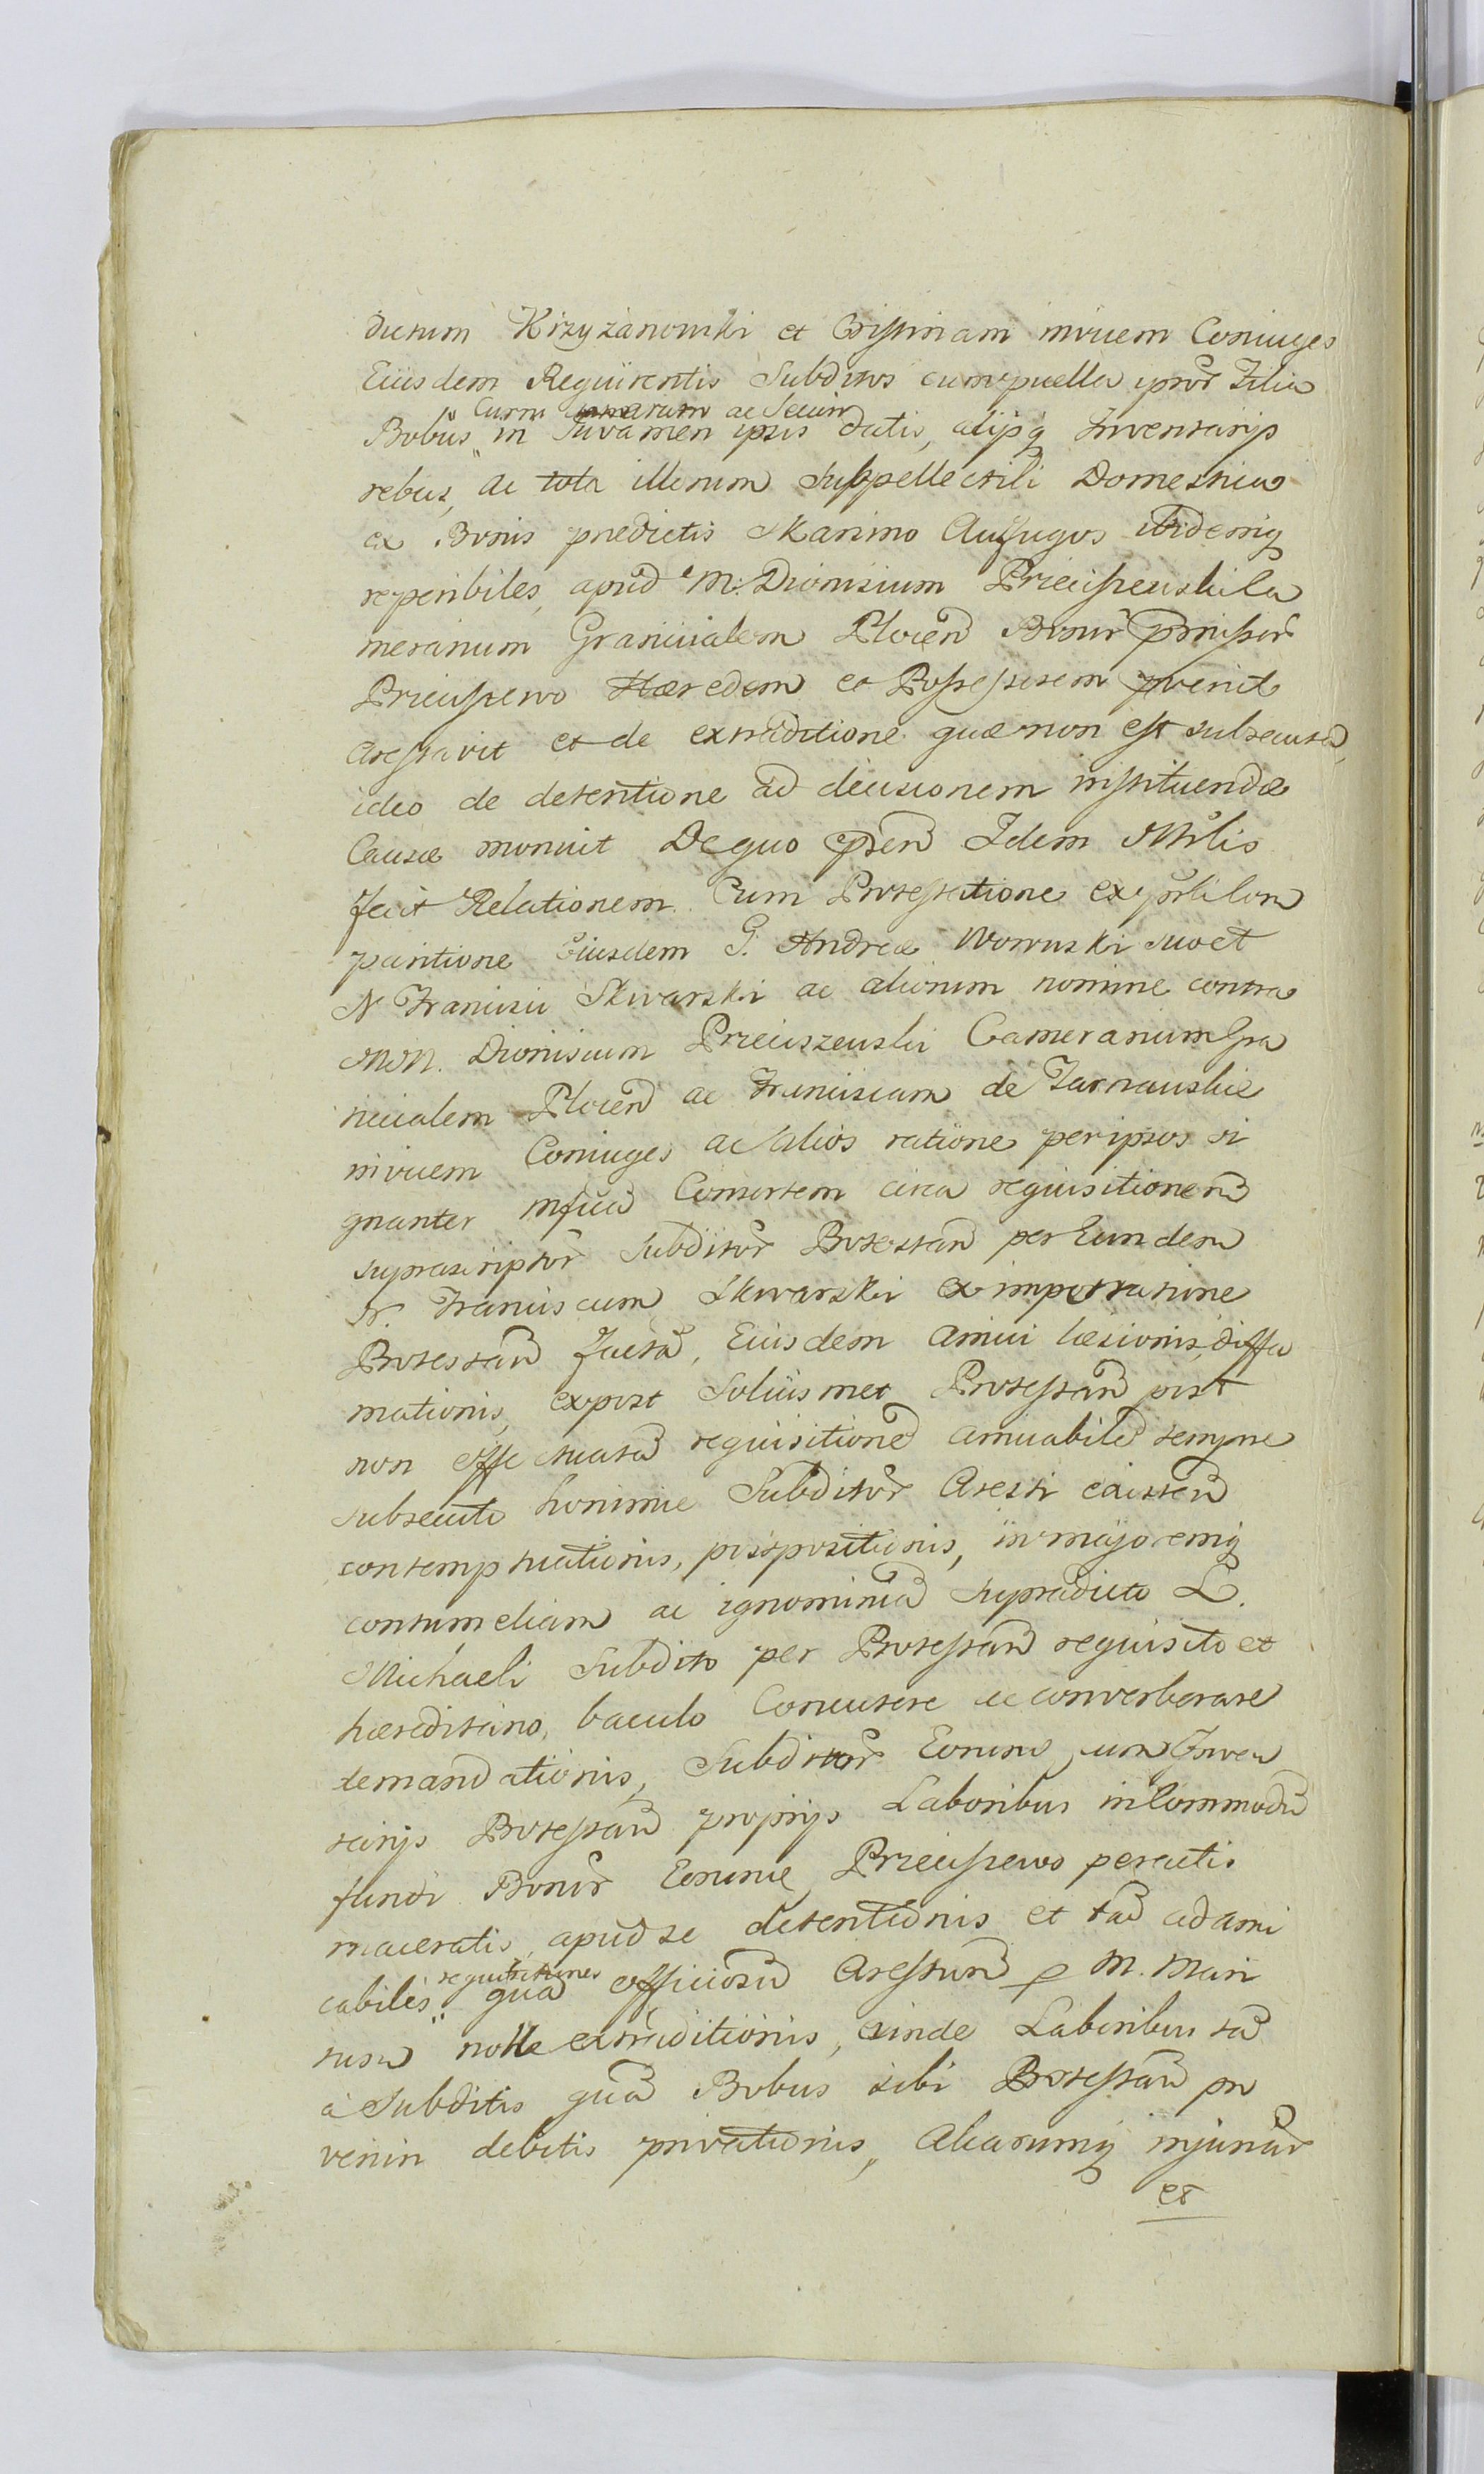 dictum Krzyżanowski et Cristinam invicem Coniuges
Eiusdem Requirentis Subditos cum puella ipsor Filia
Curru ac Securi
Bobus in Iuvamen ipsis datis, alijsq Inventarijs
rebus, ac tota illorum Suppellectili Domestica
ex Bonis predictis Skarzino Aufugos ibidemq
reperibiles, apud M. Dionisium Prieciszewski Ca
merarium Granicialem Plocen Bonor
Prieciszewo Hæredem et Possessorem
Arestavit et de extraditione quæ non est subsecuta,
ideo de detentione ad decisionem instituendæ
Causæ monuit De quo Idem Mnlis
fecit Relationem. Cum Protestatione ex pnli Com
paritione Eiusdem G. Andreæ Woroński suo et
N Francisci Skwarski ac aliorum nomine contra
MM. Dionisium Prieciszewski Camerarium Gra
nicialem Plocen ac Franciscam de Tarnawskie
invicem Coniuges ac alios ratione per ipsos si
gnanter Consortem circa requisitionem
suprascriptor Subditor Protestan per Eundem
N. Franciscum Skwarski ex impetratione
Protestan facta, Eiusdem amici læsionis, diffa
mationis, expost Soliusmet Protestan post
non effectuata requisitione amicabile
subsecuto Subditor Aresti eiusdem
contemptuationis, postpositionis, in majoremq
contumeliam ac ignominia supradicto L.
Michaeli Subdito per Protestan requisito et
hæreditario, baculo Concutere ac converberare
demandationis, Subditor Eorum cum Inven
tarijs Protestan proprijs Laboribus in Commodu
fundi Bonor Prieciszewo peractis
maceratis, apud se detentionis et ta ad ami
requisitiones
cabiles qua officiosu Arestum p M. Mini
rum nolle extraditionis, exinde Laboribus ta
a Subditis qua Bobus sibi Protestan pro
venir debitis privationis, Aliarumq injuriar
et